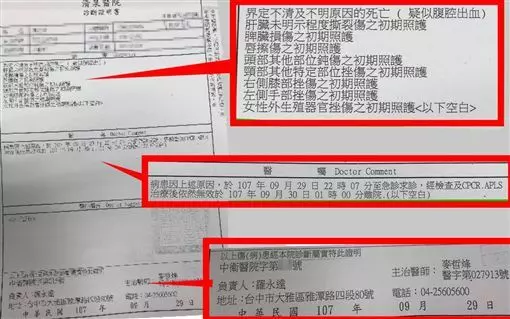 清泉醫院
診斷證明書
界定不清及不明原因的死亡 ( 疑似腹腔出血)
肝臟未明示程度撕裂傷之初期照護
脾臟損傷之初期照護
唇擦傷之初期照護
頭部其他部位鈍傷之初期照護
頸部其他特定部位挫傷之初期照護
右側膝部挫傷之初期照護
左側手部挫傷之初期照護
女性外生殖器官挫傷之初期照護<以下空白>
醫 囑 Doctor Comment
病患因上述原因，於 107 年 09 月 29 日 22 時 07 分至急診求診，經檢查及CPCR.APLS
治療後依然無效於 107 年 09 月 30 日 01 時 00 分離院.(以下空白)
醫 囑 Doctor Comment
以上傷(病)患經本院診斷屬實特此證明
中衛醫院字第 號
主治醫師： 麥哲烽
醫字第027913號
負責人：羅永達
地址：台中市大雅區雅潭路四段80號 電話：04-25605600
中 華 民 國 107 年 09 月 29 日
負責人：羅永達
地址：台中市大雅區雅潭路四段80號 電話：04-25605600
中 華 民 國 107 年 09 月 29 日